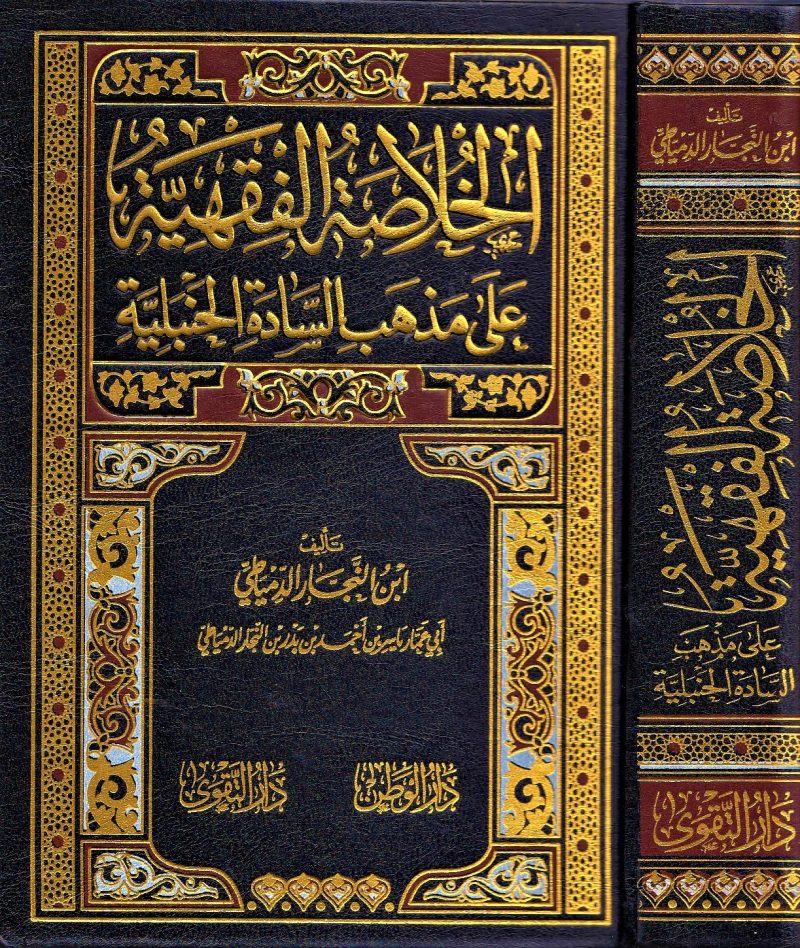 الخُلَاصَةُ الفِقْهِيَّةُ
عَلَى مَذْهَبِ السَّادَةِ الحَنْبَلِيَّةِ
تأليف
ابْنُ النَّجَّارِ الدِّمْيَاطِيِّ
أبي عمار ياسر بن أحمد بن بدر بن النجار الدمياطي
دَارُ الوَطَنِ
دَارُ التَّقْوَى
تأليف
ابْنُ النَّجَّارِ الدِّمْيَاطِيِّ
الخُلَاصَةُ الفِقْهِيَّةُ
عَلَى مَذْهَبِ
السَّادَةِ الحَنْبَلِيَّةِ
دَارُ التَّقْوَى